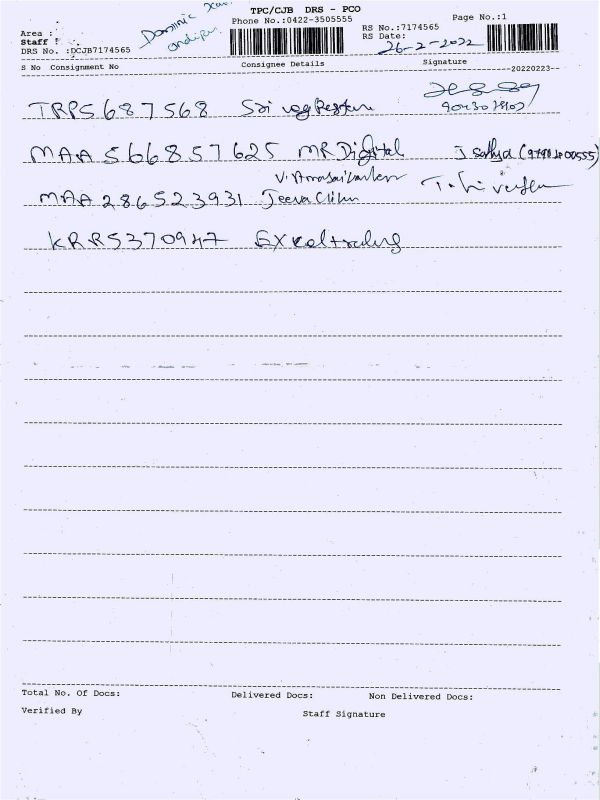 Dominic
TPC/CJB DRS - PCO
Phone No.:0422-3505555
Page No.:1
Area :
Staff :
DRS No. :DCJB7174565
RS No.:7174565
RS Date:
26-2-2022
S No Consignment No
Consignee Details
Signature
20220223
TRP5687568 Sri
9043078902
MAA 566857625 MR Digital J Sathya
MAA 286523931 Jeeva Clinic
KRR5370947 Excel trading
Total No. Of Docs:
Delivered Docs:
Non Delivered Docs:
Verified By
Staff Signature